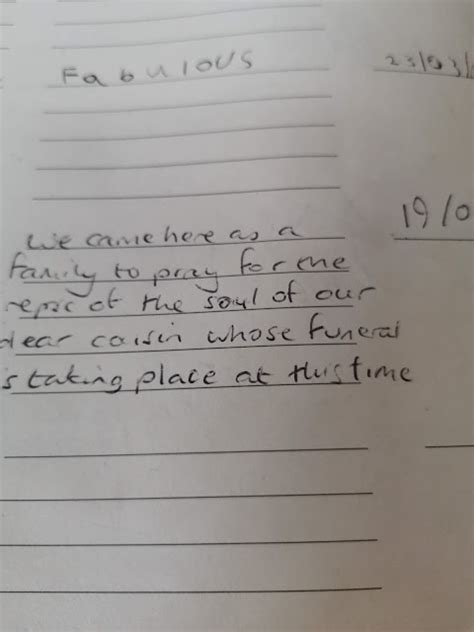 Fabulous 23/03/
19/0
We came here as a
family to pray for the
repose of the soul of our
dear cousin whose funeral
is taking place at this time